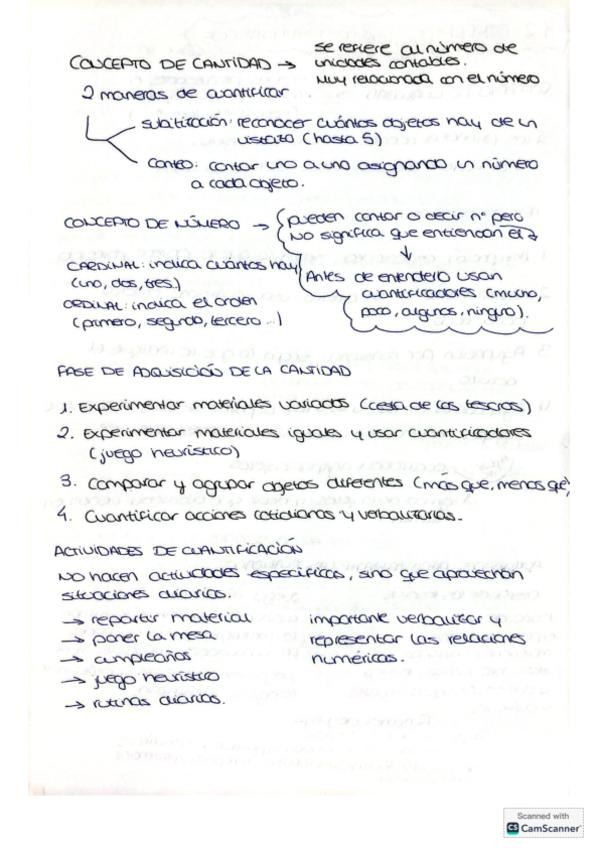 CONCEPTO DE CANTIDAD → se refiere al número de
unidades contables.
Muy relacionada con el número
2 maneras de cuantificar
subitización: reconocer cuántos objetos hay de un
vistazo (hasta 5)
conteo: contar uno a uno asignando un número
a cada objeto.
CONCEPTO DE NÚMERO → pueden contar o decir nº pero
NO significa que entiendan el
CARDINAL: indica cuántos hay
(uno, dos, tres)
ORDINAL: indica el orden
(primero, segundo, tercero...)
↓
Antes de entenderlo usan
cuantificadores (mucho,
poco, algunos, ninguno).
FASE DE ADQUISICIÓN DE LA CANTIDAD
1. Experimentar materiales variados (cesta de los tesoros)
2. Experimentar materiales iguales y usar cuantificadores
(juego heurístico)
3. Comparar y agrupar objetos diferentes (más que, menos que)
4. Cuantificar acciones cotidianas y verbalizarlas.
ACTIVIDADES DE CUANTIFICACIÓN
No hacen actividades específicas, sino que aprovechan
situaciones diarias.
→ repartir material
→ poner la mesa
→ cumpleaños
→ juego heurístico
→ rutinas diarias.
importante verbalizar y
representar las relaciones
numéricas.
Scanned with
CS CamScanner